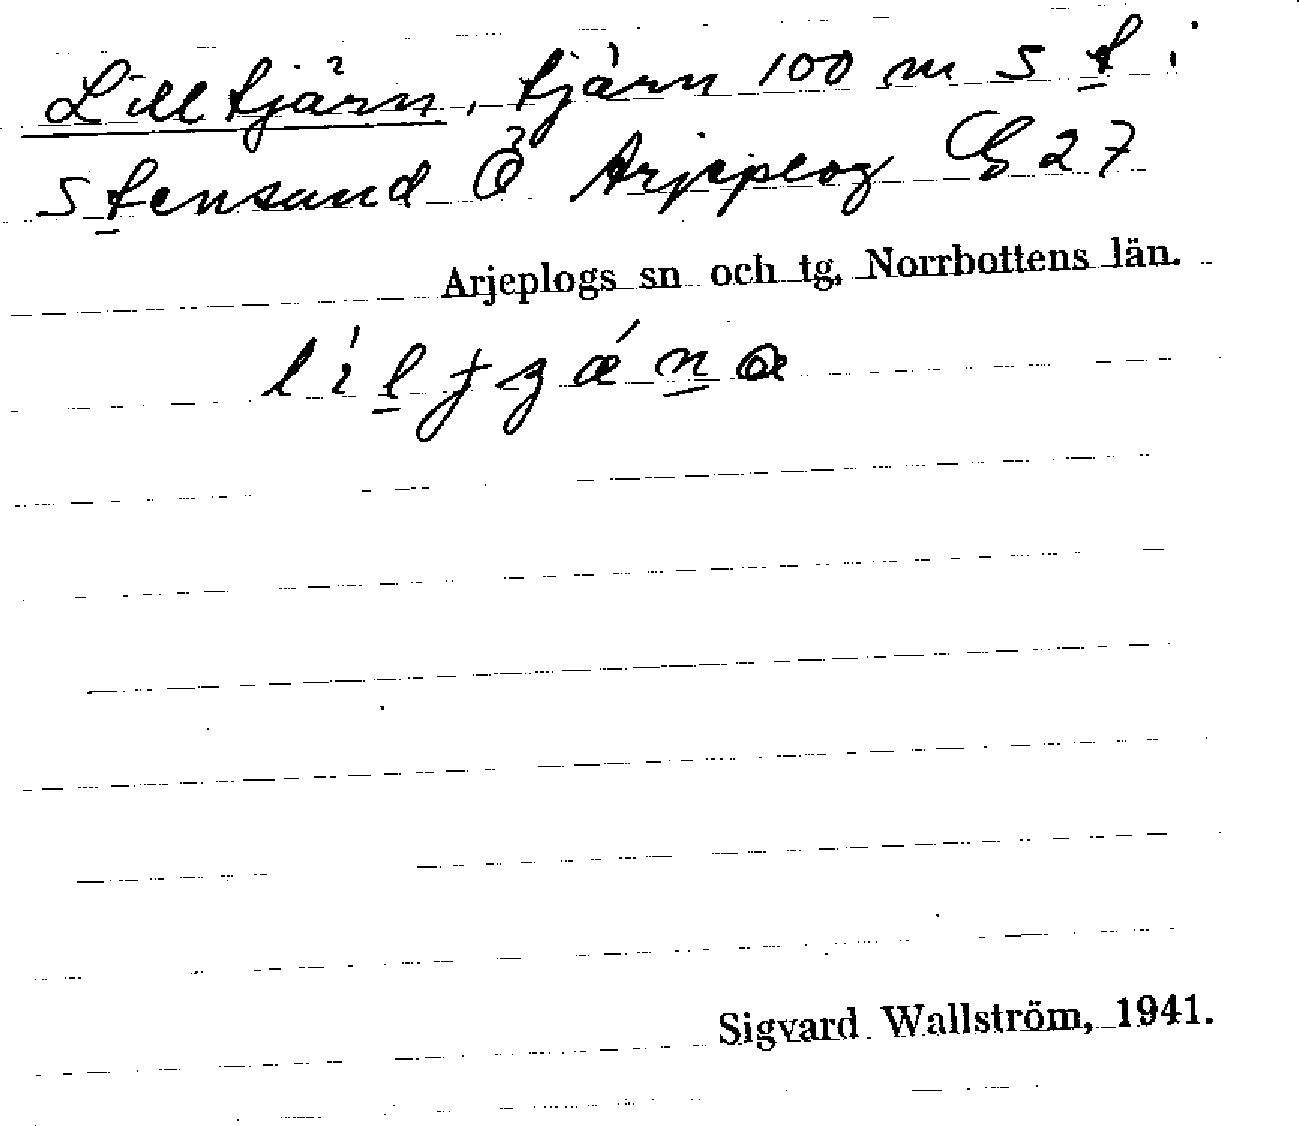 Lilltjärn, tjärn 100 m S t.
Stensund Ö Arjeplog G27
Arjeplogs sn och tg, Norrbottens län.
Sigvard Wallström, 1941.